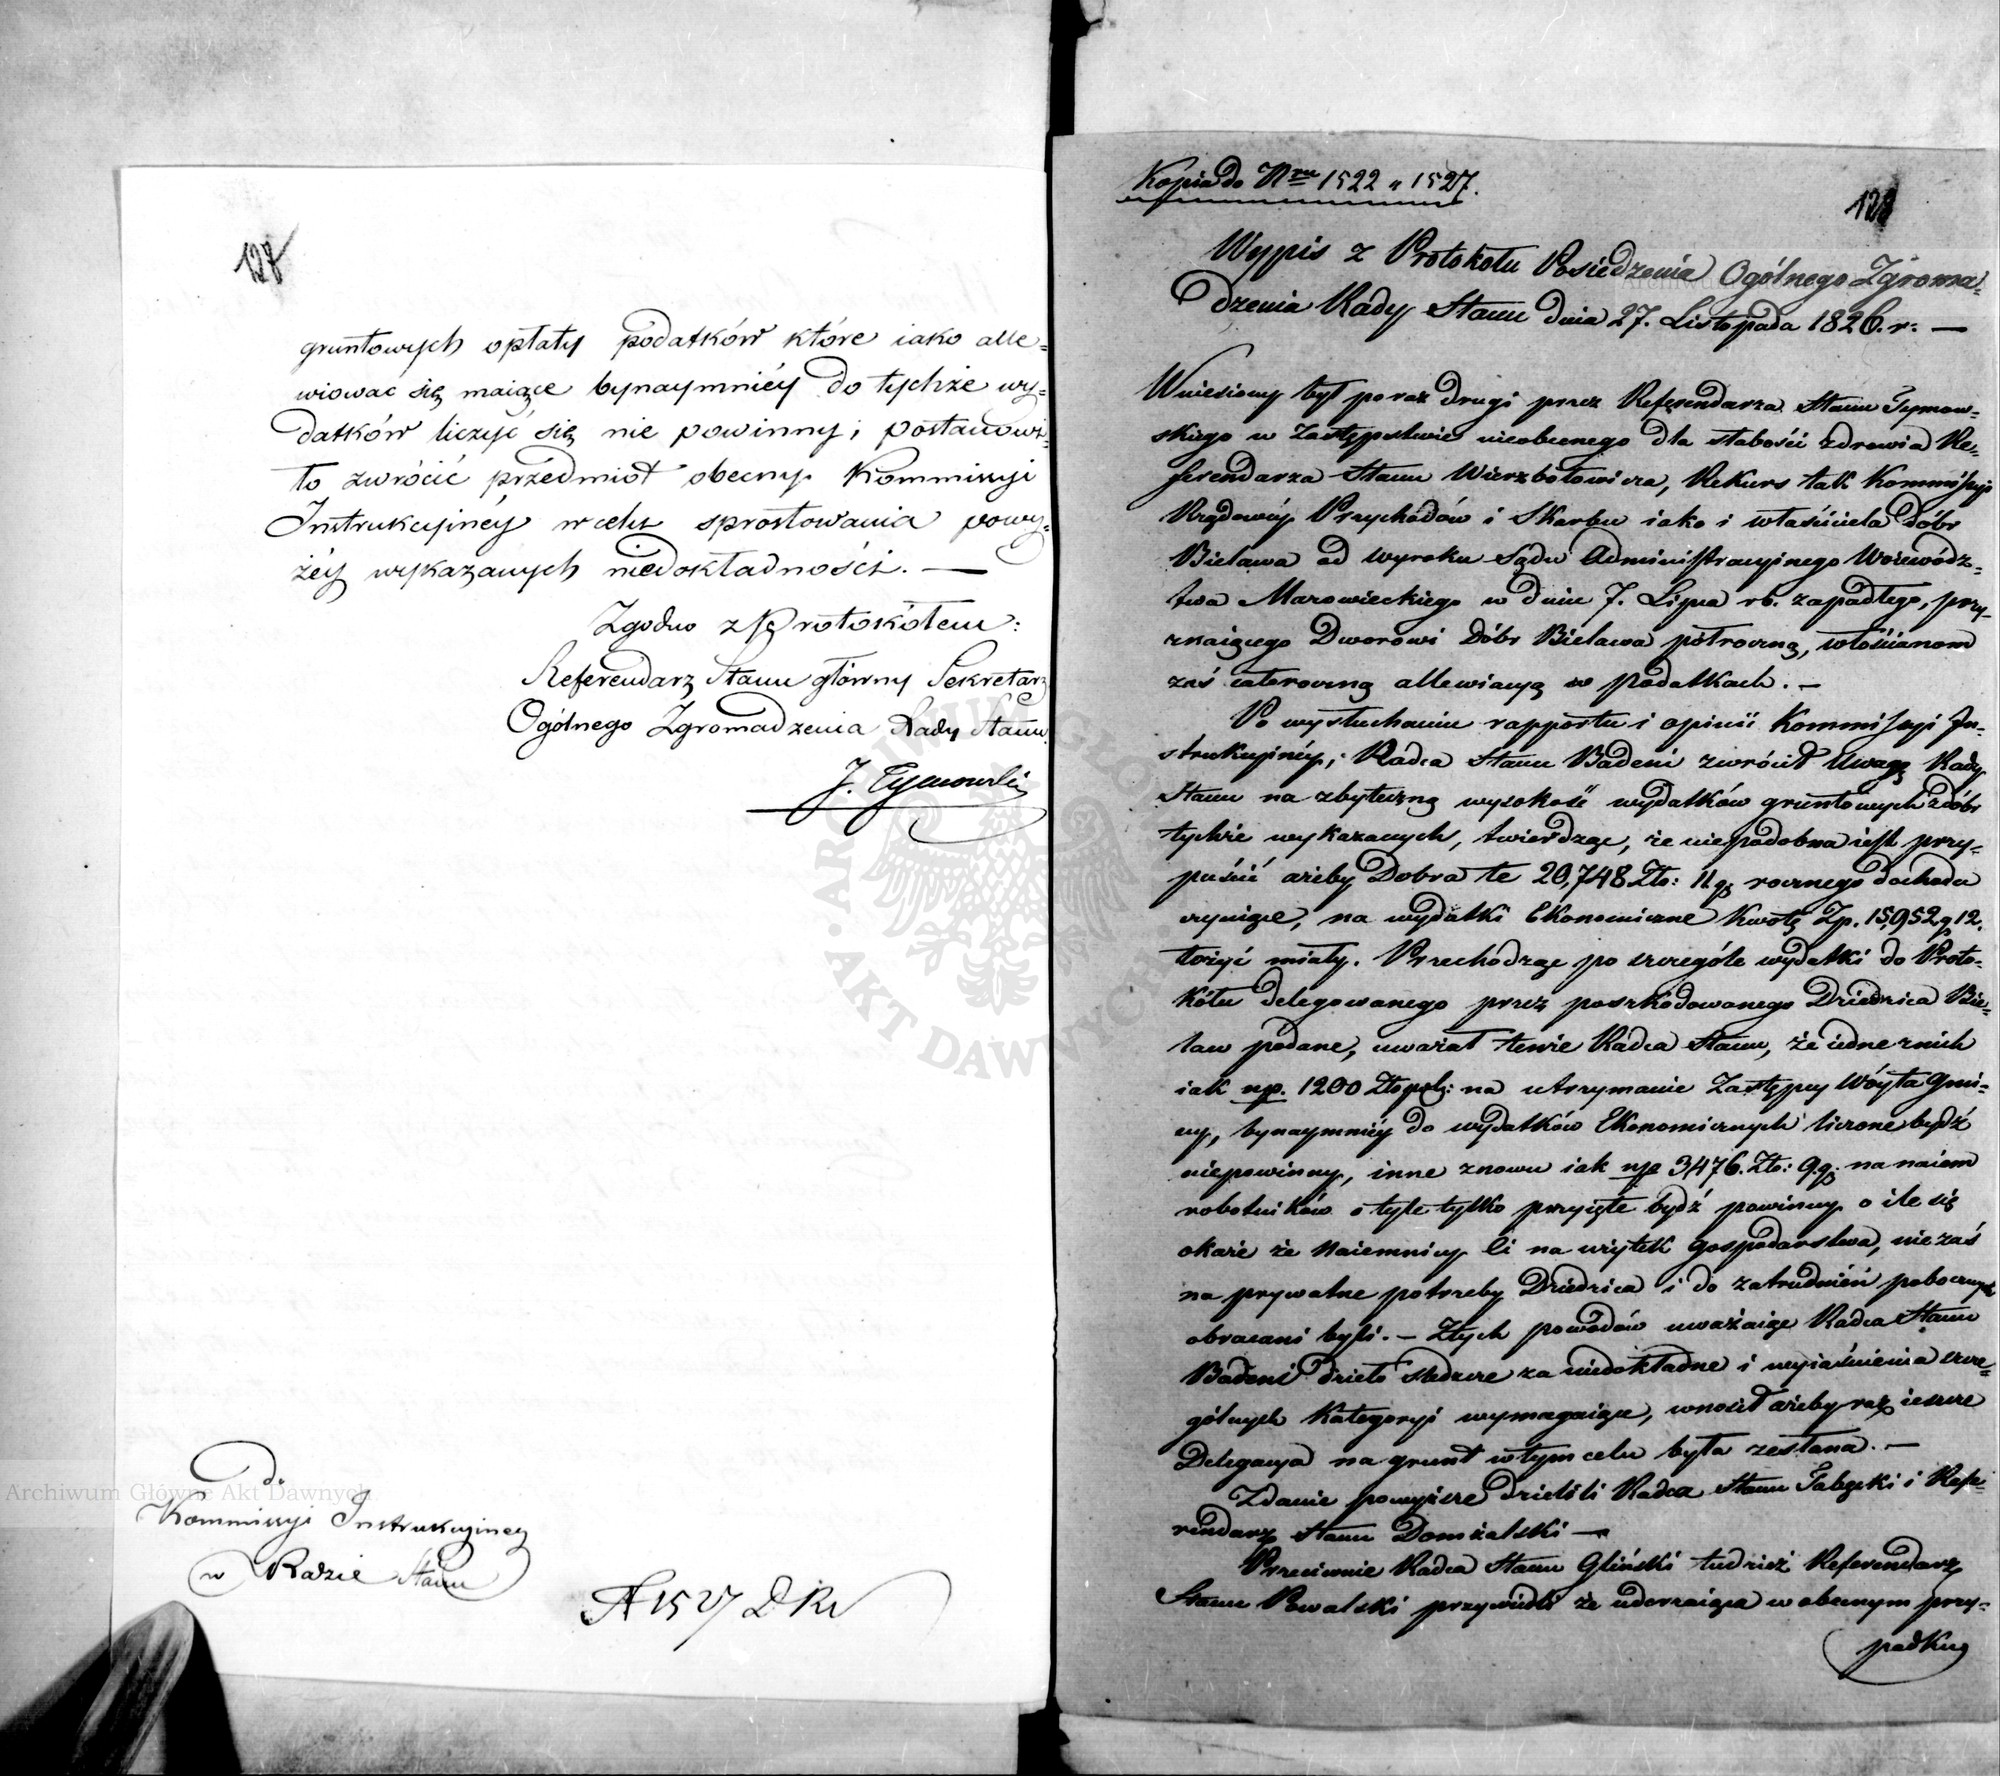 127
gruntowych opłaty podatków które iako alle=
wiować się maiące bynaymniéy do tychże wy=
datków liczyć się nie powinny; postanowi=
to zwrócić przedmiot obecny Kommissyi
Instrukcyinéy w celu sprostowania powy=
żéy wykazanych niedokładności. —
Zgodno z Protokółem:
Referendarz Stanu główny Sekretarz
Ogólnego Zgromadzenia Rady Stanu.
J. Tymowski
do
Kommissyi Instrukcyiney
w Radzie Stanu
N 1527 D.R.
Kopia do Nru 1522 " 1527.
128
Wypis z Protokołu Posiedzenia Ogólnego Zgroma=
dzenia Rady Stanu dnia 27. Listopada 1826. r. —
Wniesiony był po raz drugi przez Referendarza Stanu Tymow=
skiego w Zastępstwie nieobecnego dla słabości zdrowia Re=
ferendarza Stanu Wierzbołowicza, Rekurs tak Kommissyi
Rządowéy Przychodów i Skarbu iako i właściciela dóbr
Bielawa od wyroku Sądu Administracyinego Woiewódz=
twa Mazowieckiego w dniu 7. Lipca rb. zapadłego, przy=
znaiącego Dworowi dóbr Bielawa półroczną, włościanom
zaś całoroczną allewiacyą w podatkach. —
Po wysłuchaniu rapportu i opinii Kommissyi In=
strukcyinéy; Radca Stanu Badeni zwrócił Uwagę Rady
Stanu na zbyteczną wysokość wydatków gruntowych z dóbr
tychże wykazanych, twierdząc, że niepodobna iest przy=
puścić ażeby Dobra te 20,748 Zło: 11 g. rocznego dochodu
czyniące, na wydatki Ekonomiczne Kwotę Zp. 15,952 g 12.
łożyć miały. Przechodząc po szczególe wydatki do Proto=
kółu delegowanego przez poszkodowanego Dziedzica Bie=
law podane, uważał tenże Radca Stanu, że iedne z nich
iak np. 1200 Złopol: na utrzymanie Zastępcy Wóyta Gmi=
ny, bynaymniéy do wydatków Ekonomicznych liczone bydź
niepowinny, inne znowu iak np 3476. Zło: 9 g. na naiem
robotników o tyle tylko przyięte bydź powinny o ile się
okaże że Naiemnicy li na użytek gospodarstwa, nie zaś
na prywatne potrzeby Dziedzica i do zatrudnień pobocznych
obracani byli. — Z tych powodów uważaiąc Radca Stanu
Badeni dzieło śledcze za niedokładne i wyiaśnienia szcze=
gólnych Kategoryi wymagaiące, wnosił ażeby raz ieszcze
Delegacya na grunt w tym celu była zesłana. —
Zdanie powyższe dzielili Radca Stanu Tabęcki i Refe=
rendarz Stanu Domżalski —
Przeciwnie Radca Stanu Gliński tudzież Referendarz
Stanu Powalski przywiedli że uderzaiąca w obecnym przy=
padku
Archiwum Główne Akt Dawnych
ARCHIWUM GŁÓWNE · AKT DAWNYCH ·